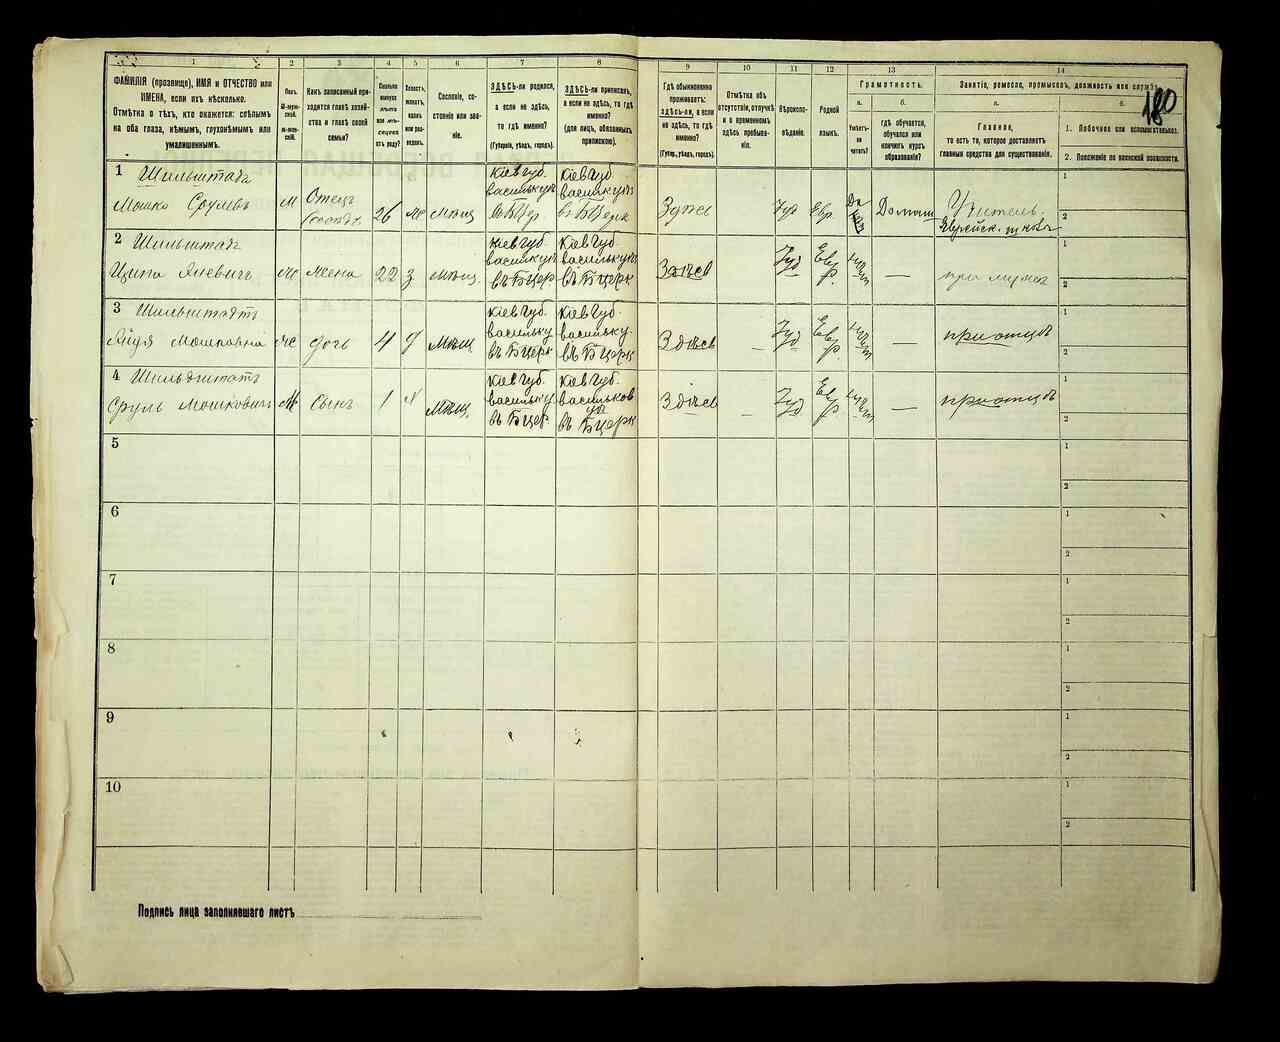 1 2 3 4 5 6 7 8 9 10 11 12 13 14
180
ФАМИЛІЯ (прозвище), ИМЯ и ОТЧЕСТВО или
ИМЕНА, если ихъ нѣсколько.
Отмѣтка о тѣхъ, кто окажется: слѣпымъ
на оба глаза, нѣмымъ, глухонѣмымъ или
умалишеннымъ.
Полъ.
М-мужской.
Ж-женскій.
Какъ записанный приходится
главѣ хозяйства
и главѣ своей
семьи?
Сколько
минуло
лѣтъ
или мѣсяцевъ
отъ роду?
Холостъ,
женатъ,
вдовъ
или разведенъ.
Сословіе, состояніе
или званіе.
ЗДѢСЬ-ли родился,
а если не здѣсь,
то гдѣ именно?
(Губернія, уѣздъ, городъ).
ЗДѢСЬ-ли приписанъ,
а если не здѣсь, то гдѣ
именно?
(для лицъ, обязанныхъ
припискою).
Гдѣ обыкновенно
проживаетъ:
здѣсь-ли, а если
не здѣсь, то гдѣ
именно?
(Губер., уѣздъ, городъ).
Отмѣтка объ
отсутствіи, отлучкѣ
и о временномъ
здѣсь пребываніи.
Вѣроисповѣданіе.
Родной
языкъ.
Грамотность.
а.
Умѣетъ-ли
читать?
б.
гдѣ обучается,
обучался или
кончилъ курсъ
образованія?
Занятіе, ремесло, промыселъ, должность или служба.
а.
Главное,
то есть то, которое доставляетъ
главныя средства для существованія.
в.
1. Побочное или вспомогательное.
2. Положеніе по воинской повинности.
1 Шильштатъ
Мошко Срулевъ
М
Отецъ
26
Мѣщ
Кіев Губ.
въ БЦер.
Кіев Губ.
въ БЦерк
Здѣсь
Іуд
Евр.
Да
Домаш
Учитель
Еврейск.
1
2
2 Шильштатъ
Ципа
Же
жена
22
З
Мѣщ.
Кіев Губ.
въ БЦер
Кіев Губ.
въ БЦерк
Здѣсь
Іуд
Евр.
—
при мужѣ
1
2
3 Шильштатъ
Мошковна
Же
дочь
4
Мѣщ
Кіев Губ.
васильку.
въ БЦерк
Кіев Губ.
васильку.
въ БЦерк
Здѣсь
—
Іуд
Евр
—
при отцѣ
1
2
4 Шильдштатъ
Сруль Мошковичъ
М
Сынъ
1
Мѣщ.
Кіев Губ.
васильку
въ БЦер
Кіев Губ.
васильков
уѣ
въ БЦерк
Здѣсь
—
Іуд
Евр
—
при отцѣ
1
2
5
1
2
6
1
2
7
1
2
8
1
2
9
1
2
10
1
2
Подпись лица заполнявшаго листъ